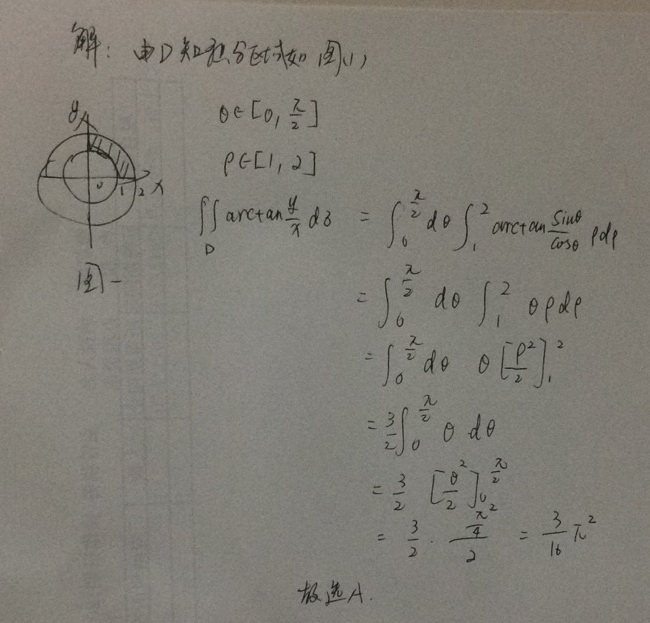 解：由D知积分区域如图(1)
θ∈[0, π/2]
ρ∈[1, 2]
y
x
0 1 2
图一
∬_D arctan y/x dδ = ∫_0^{π/2} dθ ∫_1^2 arctan sinθ/cosθ ρdρ
= ∫_0^{π/2} dθ ∫_1^2 θρdρ
= ∫_0^{π/2} dθ θ[ρ²/2]_1^2
= 3/2 ∫_0^{π/2} θ dθ
= 3/2 [θ²/2]_0^{π/2}
= 3/2 · (π²/4)/2 = 3/16 π²
故选A.